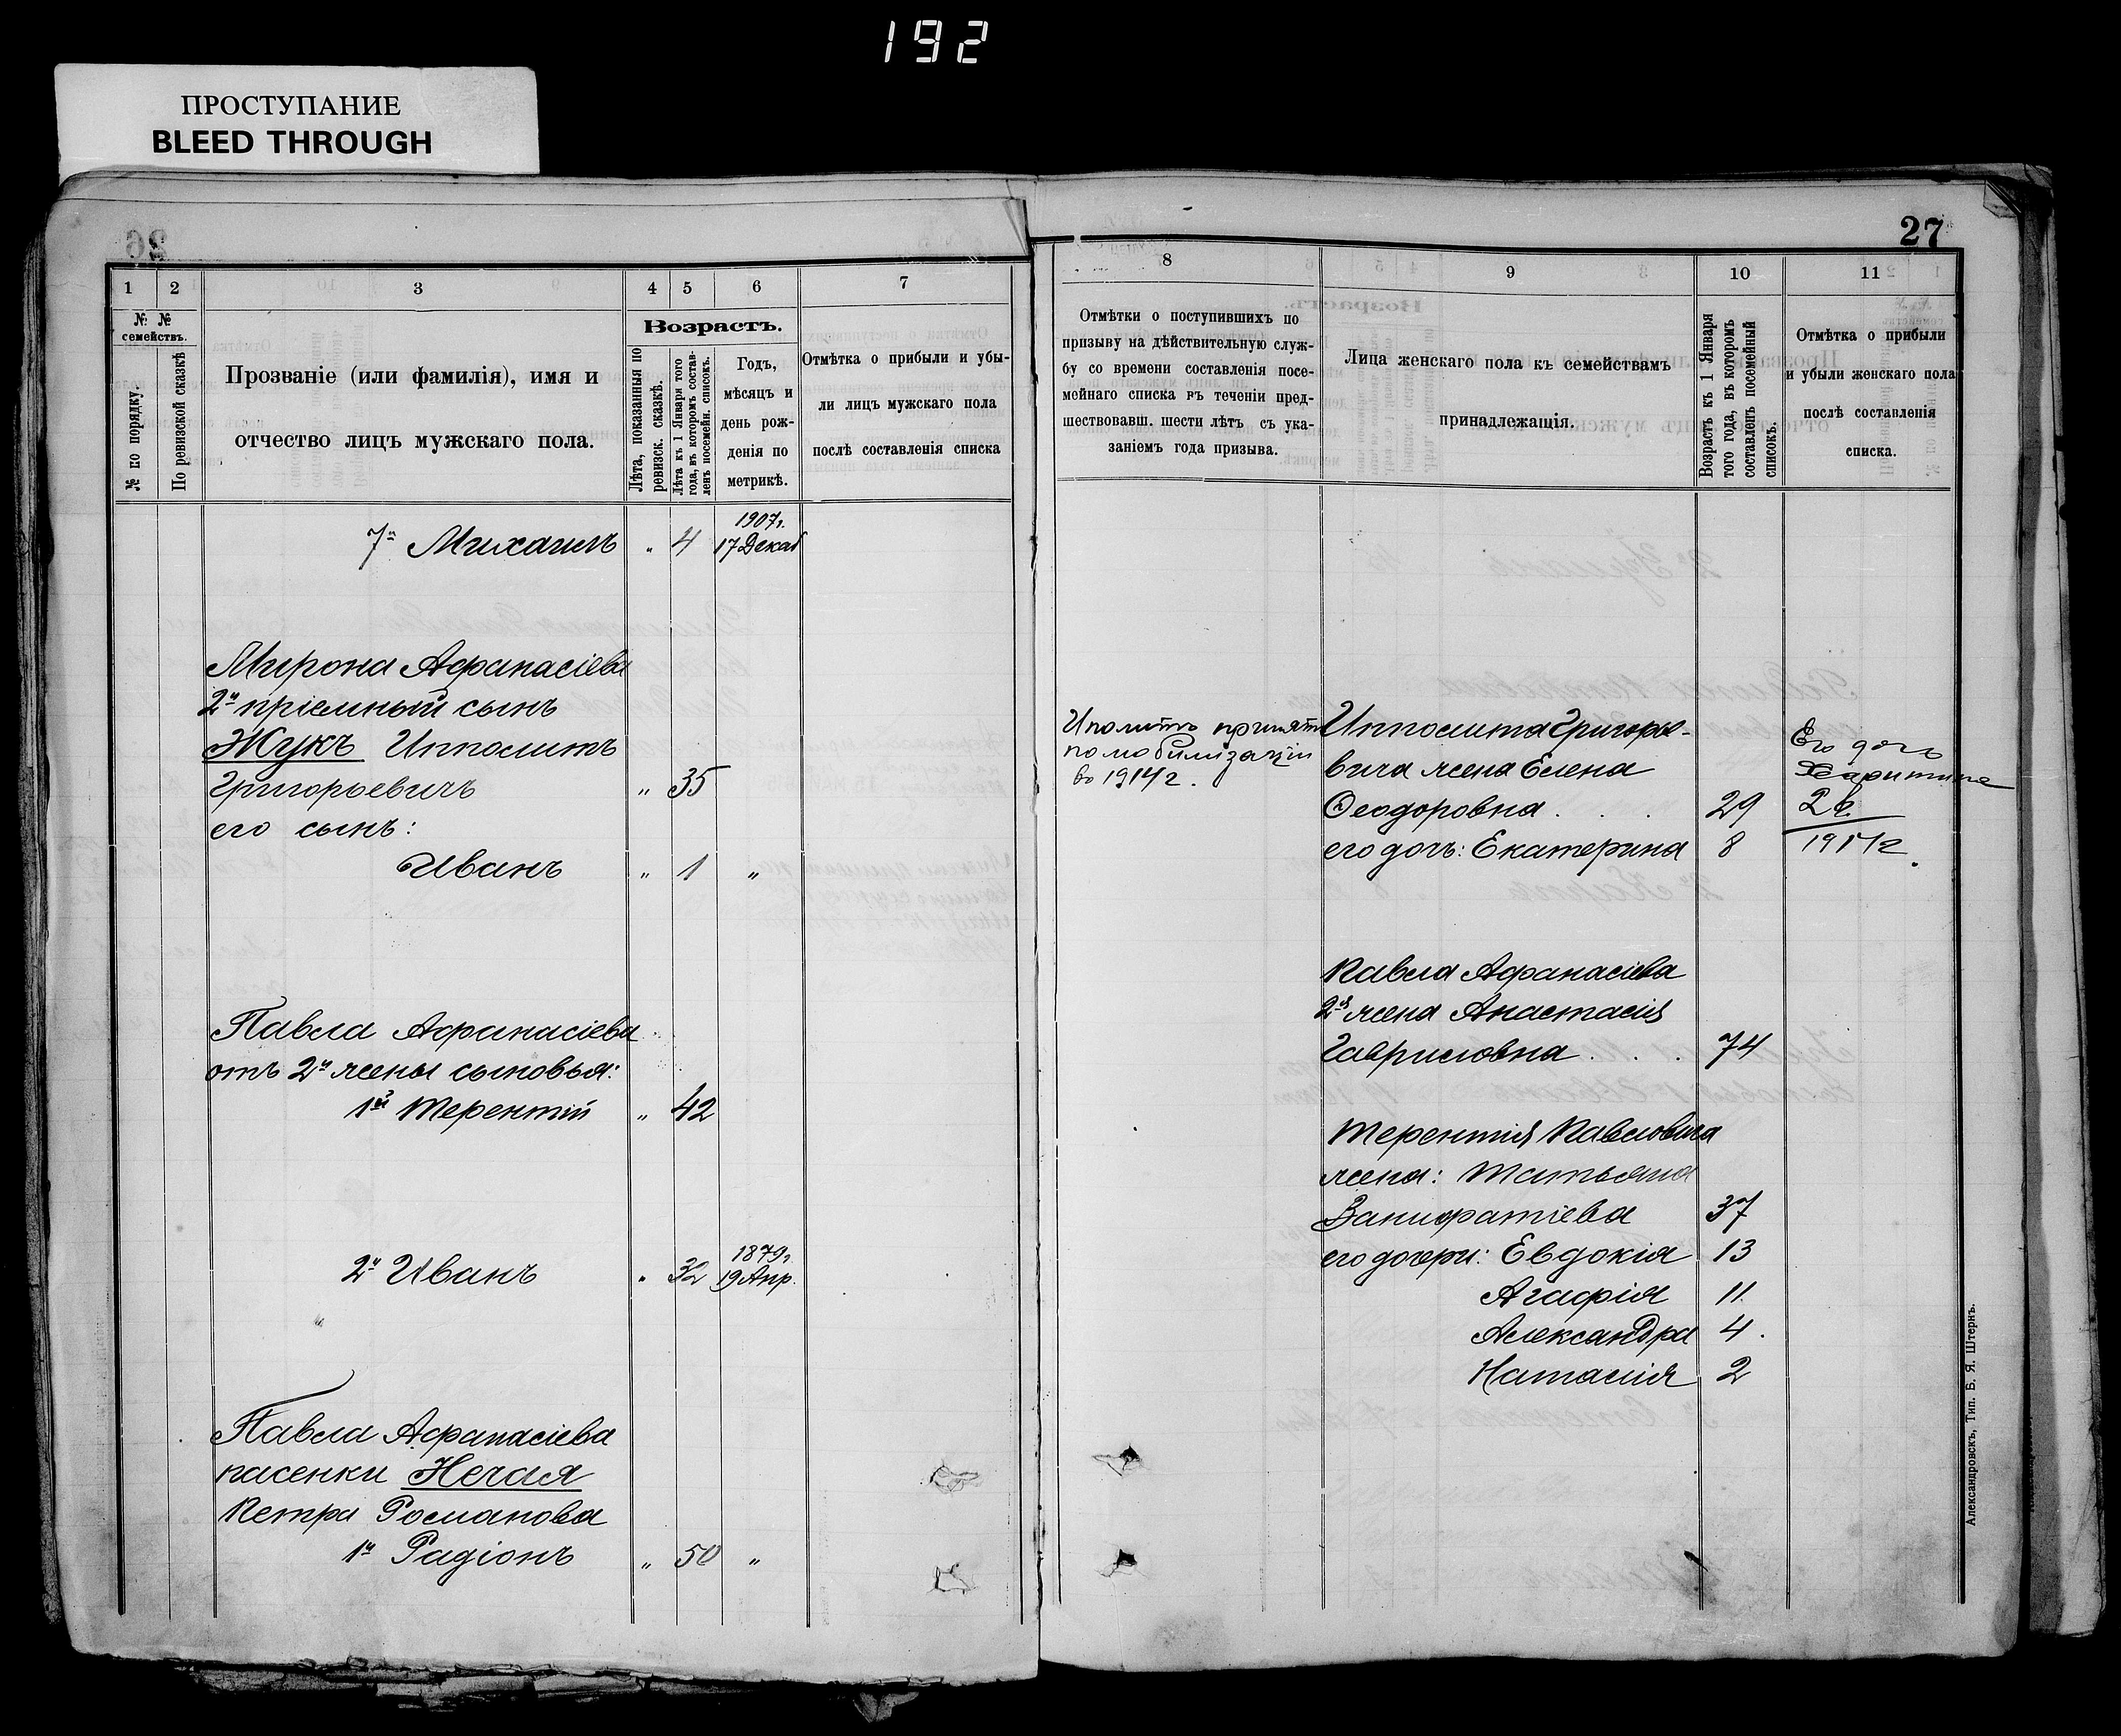 192
ПРОСТУПАНИЕ
BLEED THROUGH
26
1 2 3 4 5 6 7
№ № семействъ.
№ по порядку.
По ревизской сказкѣ
Прозваніе (или фамилія), имя и
отчество лицъ мужскаго пола.
Возрастъ.
Лѣта, показанныя по
ревизск. сказкѣ.
Лѣта къ 1 Января того
года, въ которомъ состав-
ленъ посемейн. списокъ.
Годъ,
мѣсяцъ и
день рож-
денія по
метрикѣ.
Отмѣтка о прибыли и убы-
ли лицъ мужскаго пола
послѣ составленія списка
1907г.
7й Михаилъ " 4 17 Декаб
Мирона Афанасіева
2й пріемный сынъ
Жукъ Ипполитъ
Григорьевичъ " 35
его сынъ:
Иванъ " 1 "
Павла Афанасіева
отъ 2й жены сыновья:
1й Терентій " 42
1879г
2й Иванъ " 32 19 Апр.
Павла Афанасіева
пасенки Нечая
Петра Романова
1й Радіонъ " 50 "
27
8 9 10 11
Отмѣтки о поступившихъ по
призыву на дѣйствительную служ-
бу со времени составленія посе-
мейнаго списка въ теченіи пред-
шествовавш. шести лѣтъ съ ука-
заніемъ года призыва.
Лица женскаго пола къ семействамъ
принадлежащія.
Возрастъ къ 1 Января
того года, въ которомъ
составленъ посемейный
списокъ.
Отмѣтка о прибыли
и убыли женскаго пола
послѣ составленія
списка.
Иполитъ принятъ
по мобилизаціи
въ 1914 г.
Ипполита Григорье-
вича жена Елена
Ѳеодоровна . . . 29
его дочь: Екатерина 8
Его дочь
Харитина
Павла Афанасіева
2я жена Анастасія
Гавриловна . . . 74
Терентія Павловича
жена: Татьяна
Панкратіева 37
его дочери: Евдокія 13
Агафія 11
Александра 4.
Наталія 2
Александровскъ, Тип. Б. Я. Штернъ.